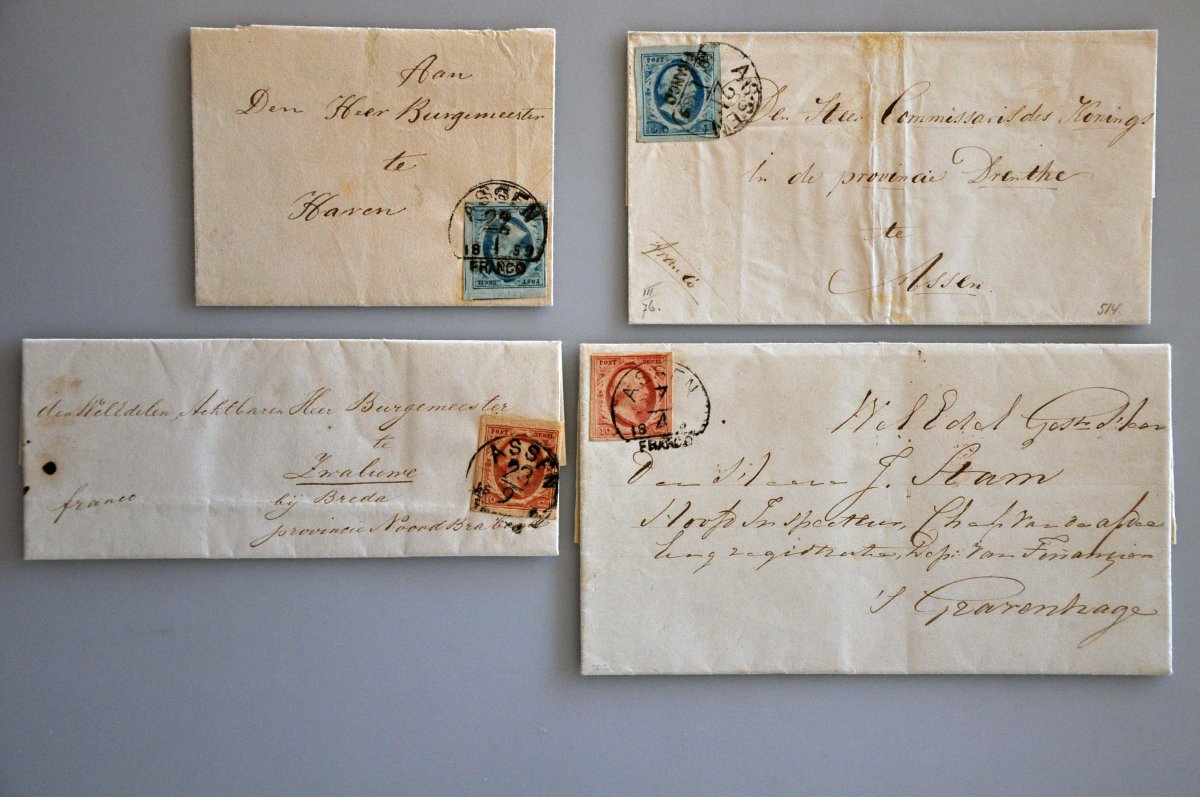 Aan
Den Heer Burgemeester
te
Haren
ASSEN
18
FRANCO
POST ZEGEL
POST
FRANCO
ASSEN
Den Heer Commissaris des Konings
In de provincie Drenthe
te
Assen.
franco
III
76.
514
den WelEdelen Achtbaren Heer Burgemeester
te
Zwaluwe
bij Breda
provincie Noord Braband
franco
POST ZEGEL
ASSEN
23
POST ZEGEL
ASSEN
7
4
18
FRANCO
WelEdel Gestr Heer
Den Heere J. Stam
Hoofd Inspecteur, Chef van de afdee
ling registratie, Dep. van Financien
's Gravenhage